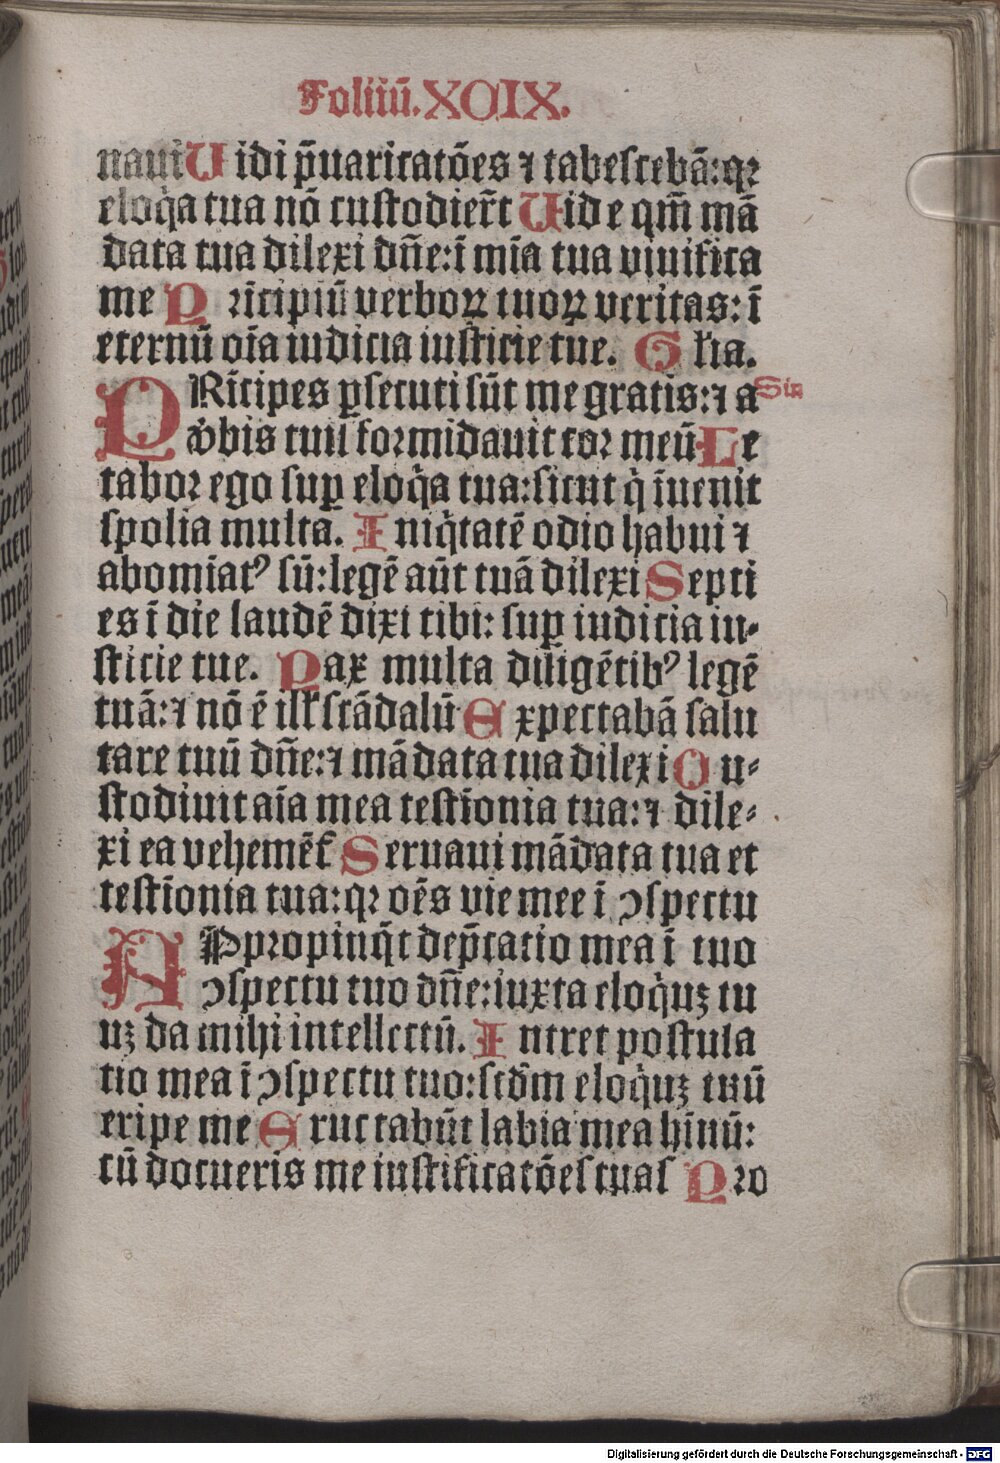 Foliũ.XCIX.
naui Uidi p̃uaricatões ⁊ tabescebã:qꝛ
eloq̃a tua nõ custodier̃t Uide qm̃ mã
data tua dilexi dñe:ĩ mĩa tua viuifica
me Prĩcipiũ verboꝝ tuoꝝ veritas: ĩ
eternũ oĩa iudicia iusticie tue. Glꝛia.
PRĩcipes ꝑsecuti sũt me gratis:⁊ a Sin
v̾bis tuis formidauit cor meũ Le
tabor ego suꝑ eloq̃a tua:sicut q̃ ĩuenit
spolia multa. Iniq̃tatẽ odio habui ⁊
abomĩatꝰ sũ:legẽ aũt tuã dilexi Septi
es ĩ die laudẽ dixi tibi: suꝑ iudicia iu-
sticie tue. Pax multa diligẽtibꝰ legẽ
tuã:⁊ nõ ẽ illꝭ scãdalũ Expectabã salu
tare tuũ dñe:⁊ mãdata tua dilexi Cu-
stodiuit aĩa mea testĩonia tua:⁊ dile-
xi ea vehemẽt̾ Seruaui mãdata tua et
testĩonia tua:qꝛ oẽs vie mee ĩ ↄspectu
APpropinq̃t dep̃catio mea ĩ tuo
ↄspectu tuo dñe:iuxta eloq̃uꝫ tu
uꝫ da mihi intellectũ. Intret postula
tio mea ĩ ↄspectu tuo:scd̃m eloq̃uꝫ tuũ
eripe me Eructabũt labia mea hĩnũ:
cũ docueris me iustificatões tuas Pro
Digitalisierung gefördert durch die Deutsche Forschungsgemeinschaft - DFG